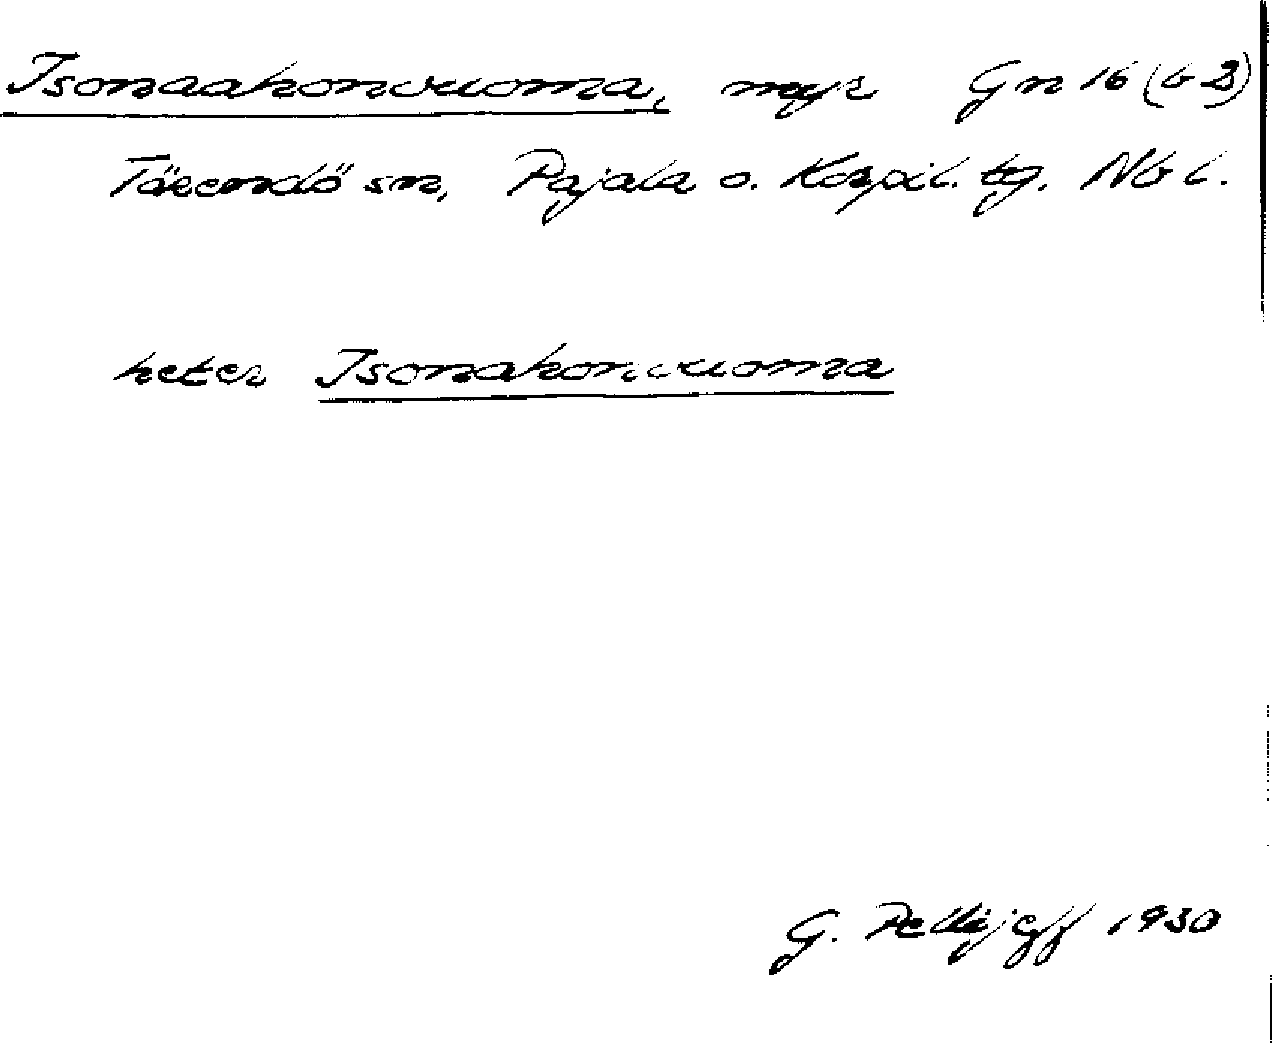 Isonaakonvuoma, myr Gn 16 (b 3)
Tärendö sn, Pajala o. Korpil. tg. Nb l.
heter Isonakonvuoma
G. Pellijeff 1930